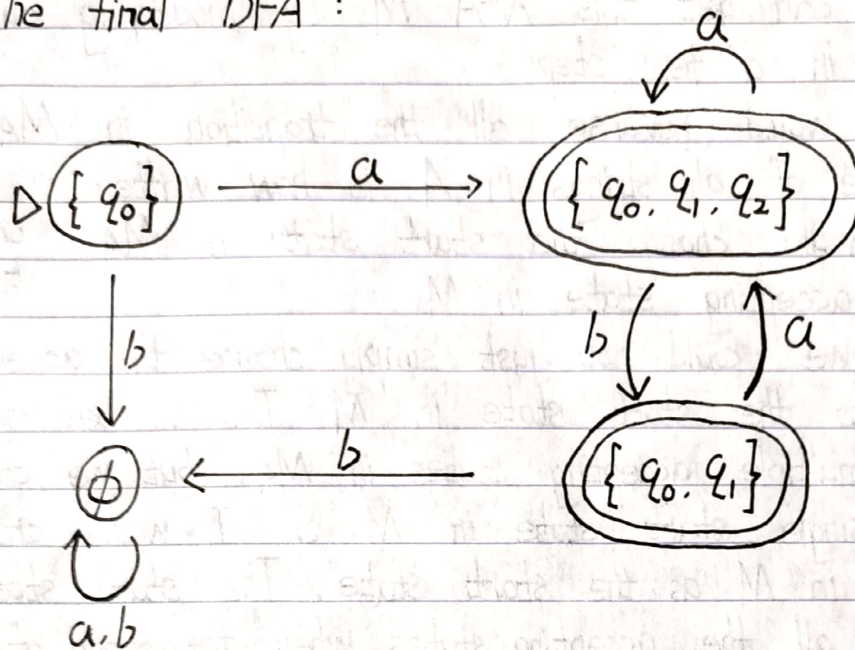 he final DFA :
a
{ q0 } a { q0, q1, q2 }
b b a
φ b { q0, q1 }
a, b